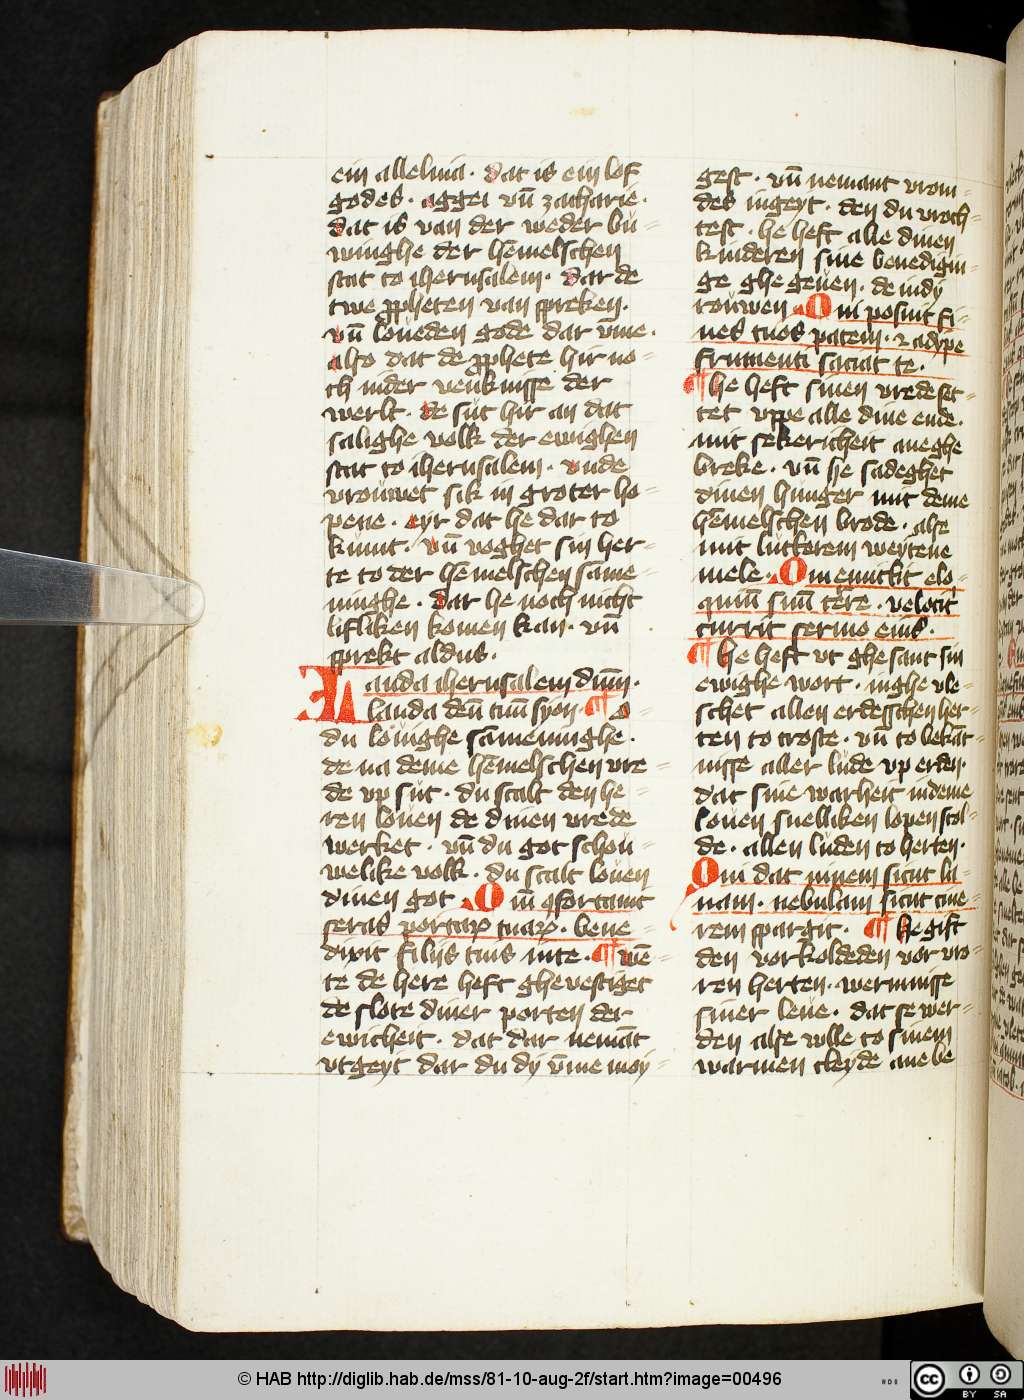 ein alleluia · dat is ein lof
godes · aggei vn̄ zacharie ·
dat is van der weder bu=
winghe der hēmelschen
stat to iherusalem · dar de
twe ppheten van spreken ·
vn̄ loueden gode dar vme ·
also dat de pphete hir no=
ch inder venknisse der
werlt · de sut hir an dat
salighe volk der ewighen
stat to iherusalem · vnde
vrouwet sik in groter ho=
pene · eyr dat he dar to
kumt · vn̄ voghet sin her=
te to der hēmelschen same=
ninghe · dar he noch nicht
lifliken komen kan · vn̄
sprekt aldus ·
Lauda iherusalem dnm̄ ·
lauda deū tuū syon · ¶ O
du louighe sāmeninghe ·
de na deme hēmelschen vre=
de vp sut · du scalt den he=
ren louen de dinen vrede
werket · vn̄ du got schou=
welike volk · du scalt louen
dinen got · Qm̄ ꝯfortauit
seras portaꝝ tuaꝝ · bene=
dixit filijs tuis inte · ¶ wē=
te de here heft ghevestiget
de slote diner porten der
ewicheit · dat dar nemāt
vtgeyt dar du dy v̄me moy=
gest · vn̄ nemant vrom=
des ingeyt · den du vroch=
test · he heft alle dinen
kinderen sine benedigin=
ge ghe geuen · de in dy
rouwen · Qui posuit fi=
nes tuos pacem · ⁊ adype
frumenti saciat te ·
¶ he heft sinen vrede set=
tet vppe alle dine ende ·
mit sekericheit ane ghe
breke · vn̄ he sadeghet
dinen hunger mit deme
hēmelschen brode · alse
mit lutterem weytene
mele · Qui emittit elo=
quiū suū terre · velocit
currit sermo eius ·
¶ he heft vt ghe sant sin
ewighe wort · inghe vle=
schet allen erdesschen her=
ten to troste · vn̄ to bekāt=
nisse aller lude vp erden ·
dat sine warheit indeme
louen snelliken lopen scol=
de · allen luden to herten ·
Qui dat niuem sicut la=
nam · nebulam sicut cine=
rem spargit · ¶ he gift
den vorkoldeden vor vro=
ren herten · werminisse
siner leue · dat se wer=
den alse wlle to sinem
warmen cleyde ane be
© HAB http://diglib.hab.de/mss/81-10-aug-2f/start.htm?image=00496
cc
BY SA